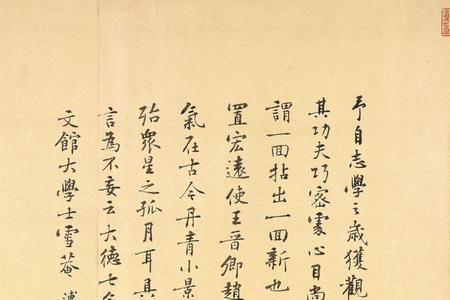 予自志學之歲獲觀
其功夫巧密處心目尚
謂一面拈出一面新也
置宏遠使王晉卿趙
氣在古今丹青小景
殆眾星之孤月耳具
言為不妄云大德七
文館大學士雪菴